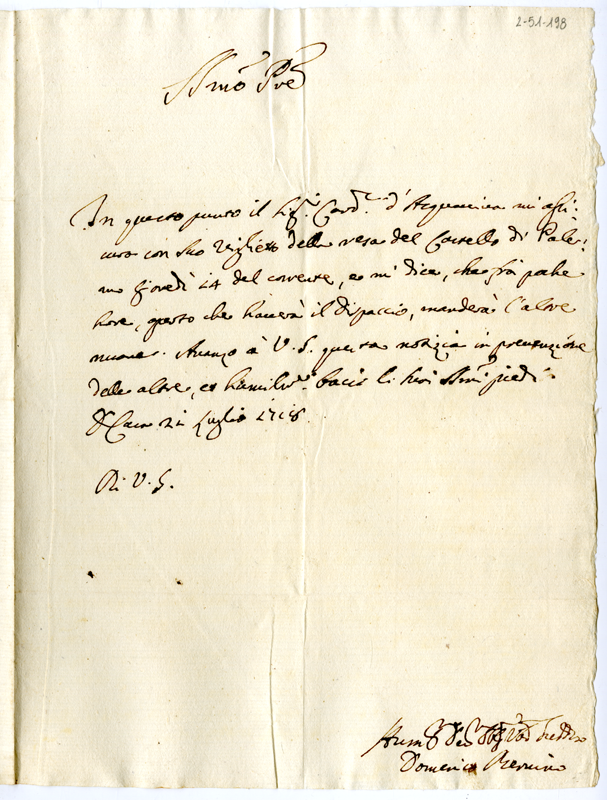 2-51-198
SSmo Pre
In questo punto il Sig.r Card.l d'Acquaviva mi assi-
cura con suo viglietto della resa del Castello di Paler-
mo giovedì 14 del corrente, e mi dice, che frà poche
hore, aperto che haverà il dispaccio, manderà l'altre
nuove. Avanzo à V. S. questa notizia in prevenzione
delle altre, et humilm.te bacio li suoi SSmi piedi.
Casa 21 Luglio 1718
Di V. S.
Hum.o
Domenico